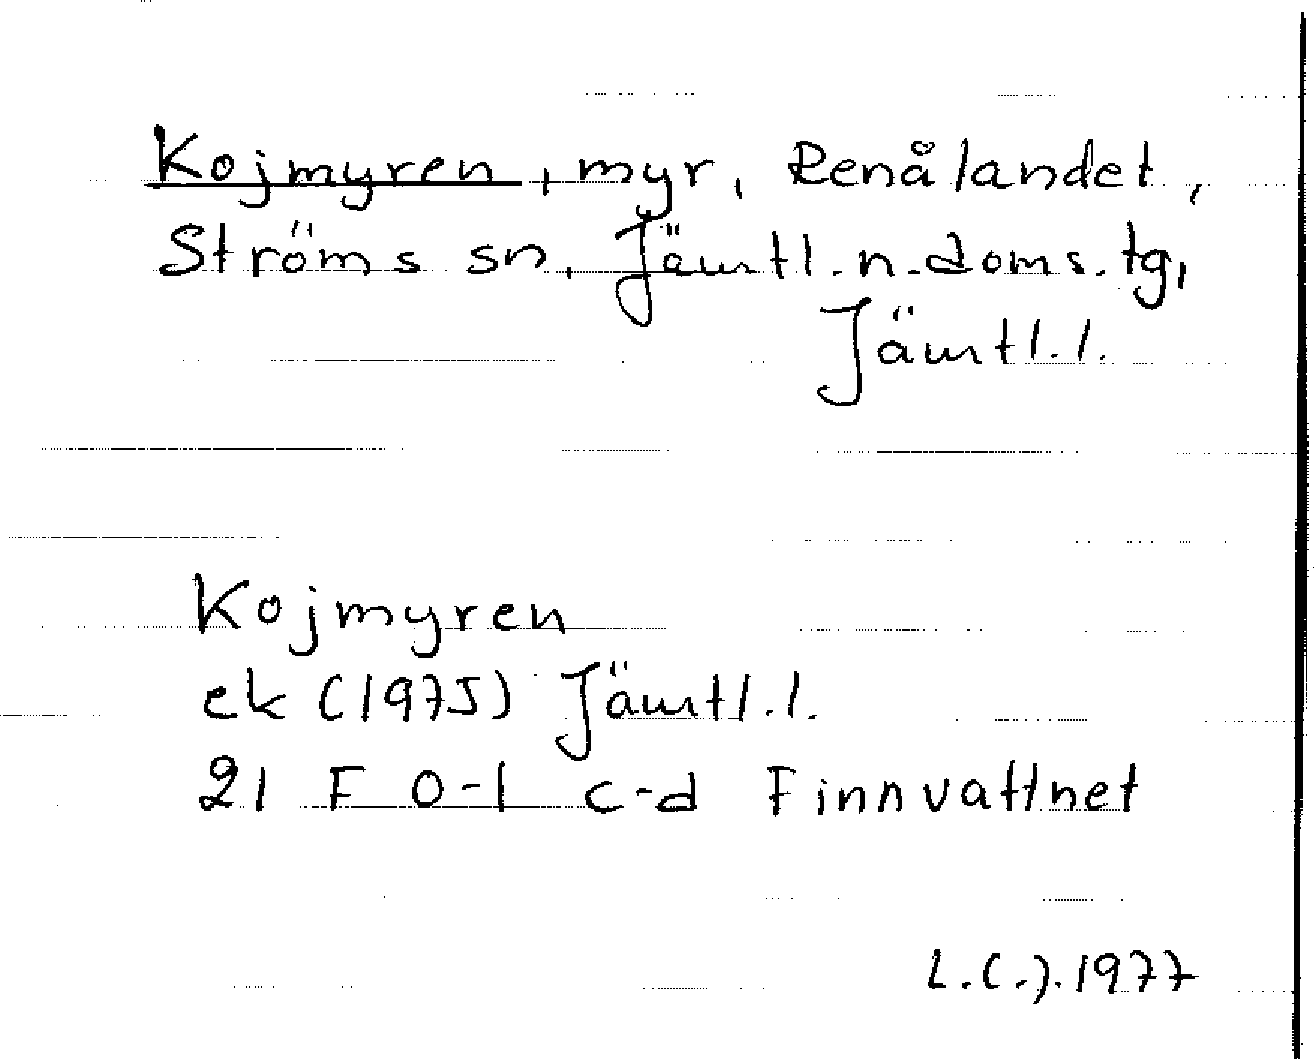 Kojmyren, myr, Renålandet,
Ströms sn, Jämtl. n. doms. tg,
Jämtl. l.
Kojmyren
ek (1975) Jämtl. l.
21 F 0-1 c-d Finnvattnet
L.C.J. 1977